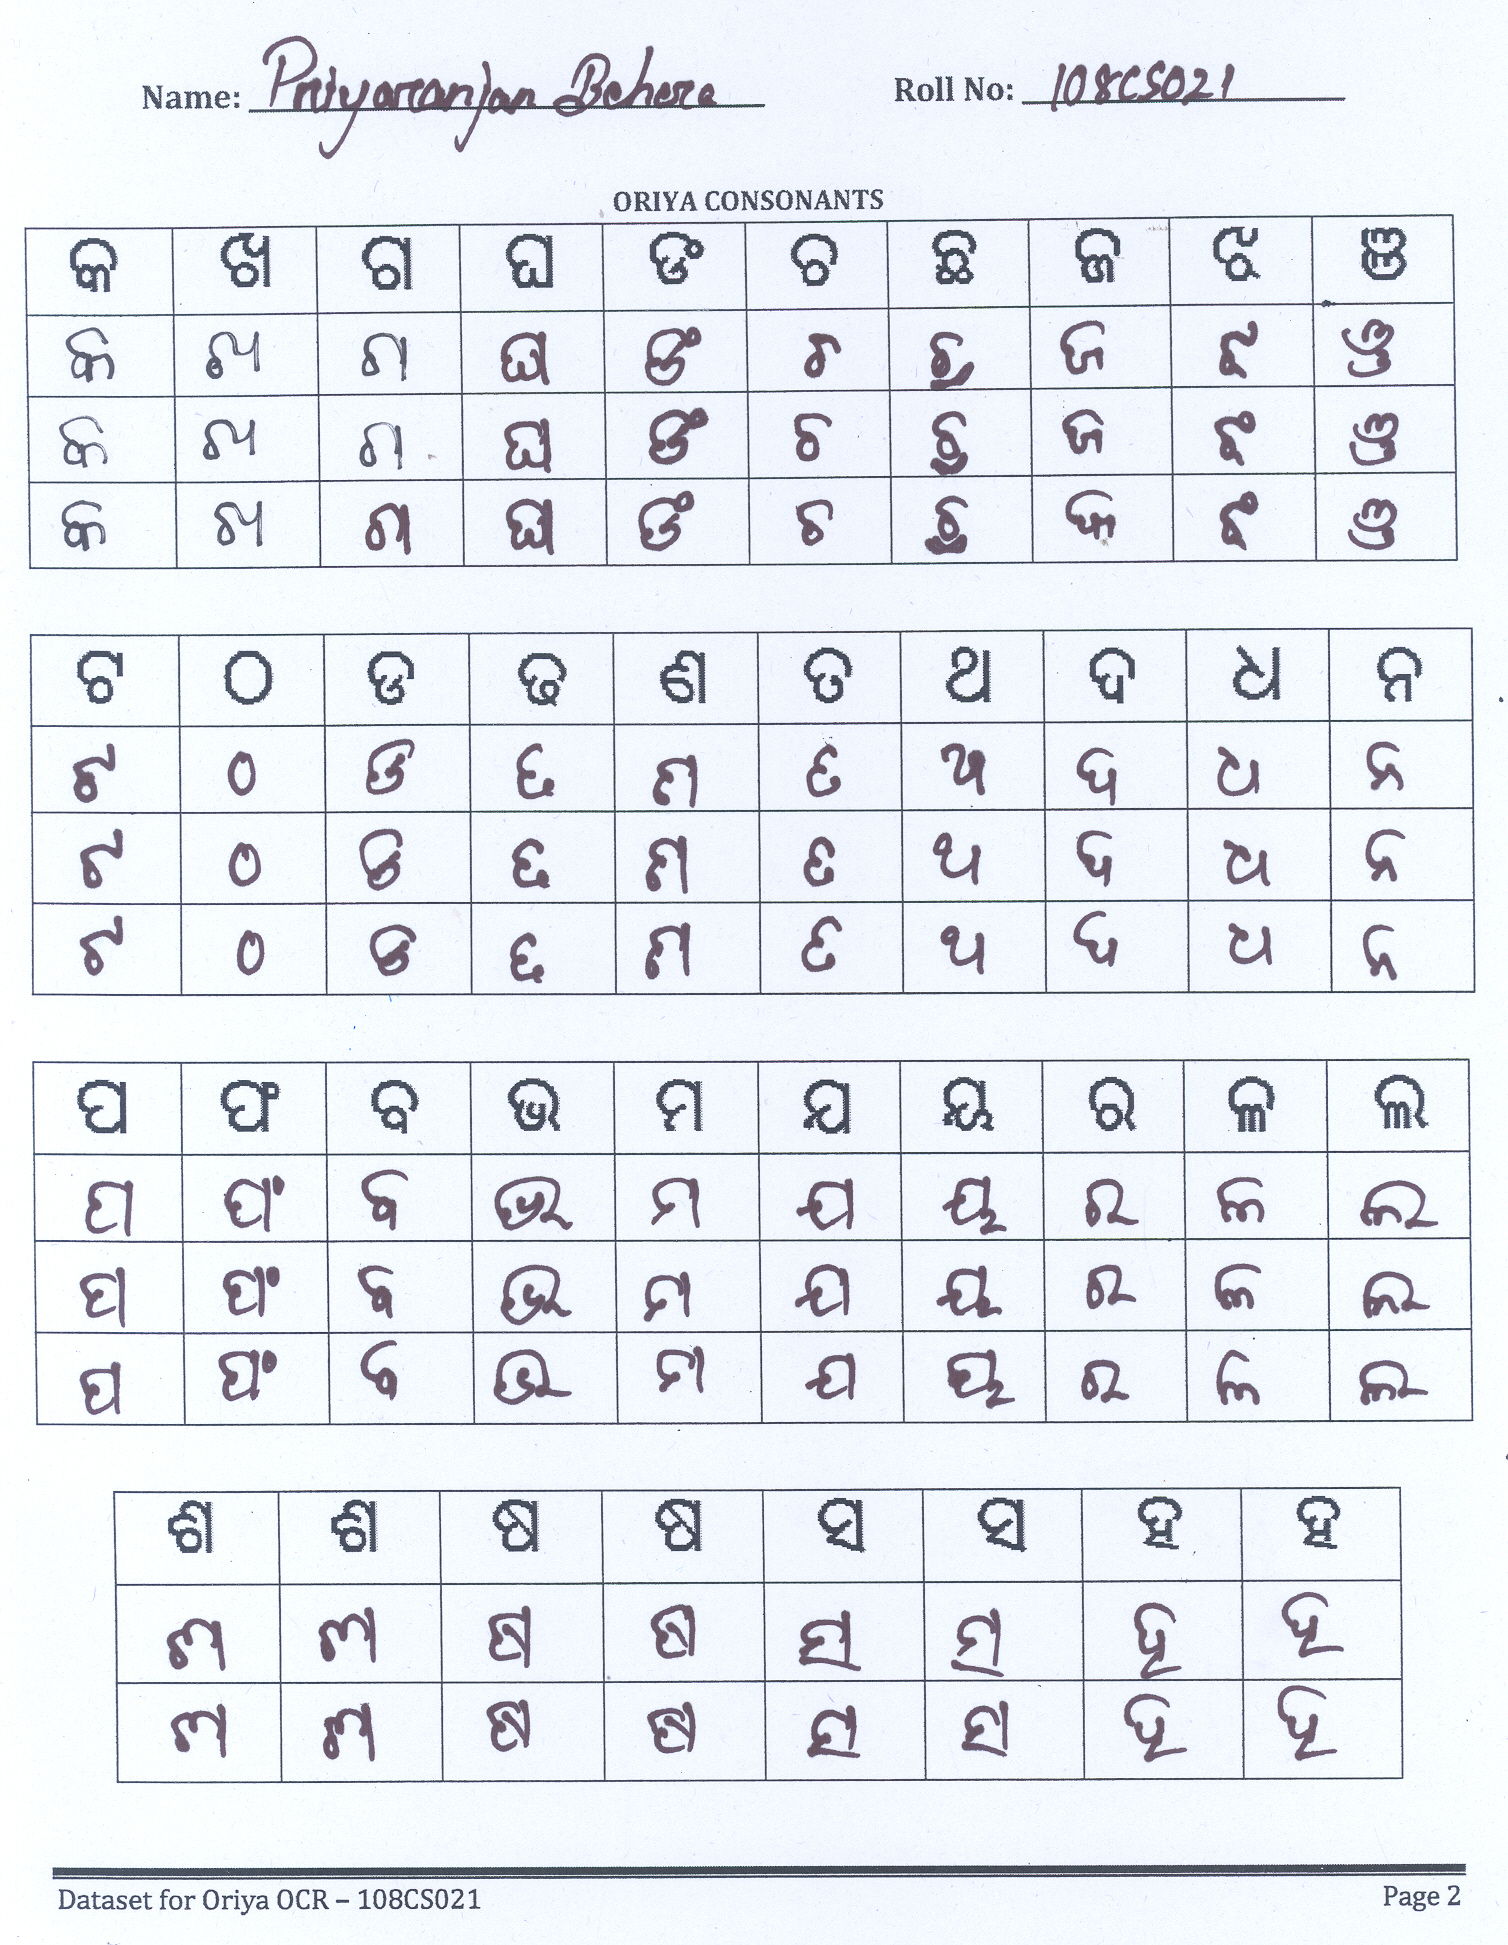 Name: Priyaranjan Behera Roll No: 108CS021
ORIYA CONSONANTS
କ ଖ ଗ ଘ ଙ ଚ ଛ ଜ ଝ ଞ
କ ଖ ଗ ଘ ଙ ଚ ଛ ଜ ଝ ଞ
କ ଖ ଗ ଘ ଙ ଚ ଛ ଜ ଝ ଞ
କ ଖ ଗ ଘ ଙ ଚ ଛ ଜ ଝ ଞ
ଟ ଠ ଡ ଢ ଣ ତ ଥ ଦ ଧ ନ
ଟ ଠ ଡ ଢ ଣ ତ ଥ ଦ ଧ ନ
ଟ ଠ ଡ ଢ ଣ ତ ଥ ଦ ଧ ନ
ଟ ଠ ଡ ଢ ଣ ତ ଥ ଦ ଧ ନ
ପ ଫ ବ ଭ ମ ଯ ୟ ର ଳ ଲ
ପ ଫ ବ ଭ ମ ଯ ୟ ର ଳ ଲ
ପ ଫ ବ ଭ ମ ଯ ୟ ର ଳ ଲ
ପ ଫ ବ ଭ ମ ଯ ୟ ର ଳ ଲ
ଶ ଶ ଷ ଷ ସ ସ ହ ହ
ଶ ଶ ଷ ଷ ସ ସ ହ ହ
ଶ ଶ ଷ ଷ ସ ସ ହ ହ
Dataset for Oriya OCR – 108CS021 Page 2